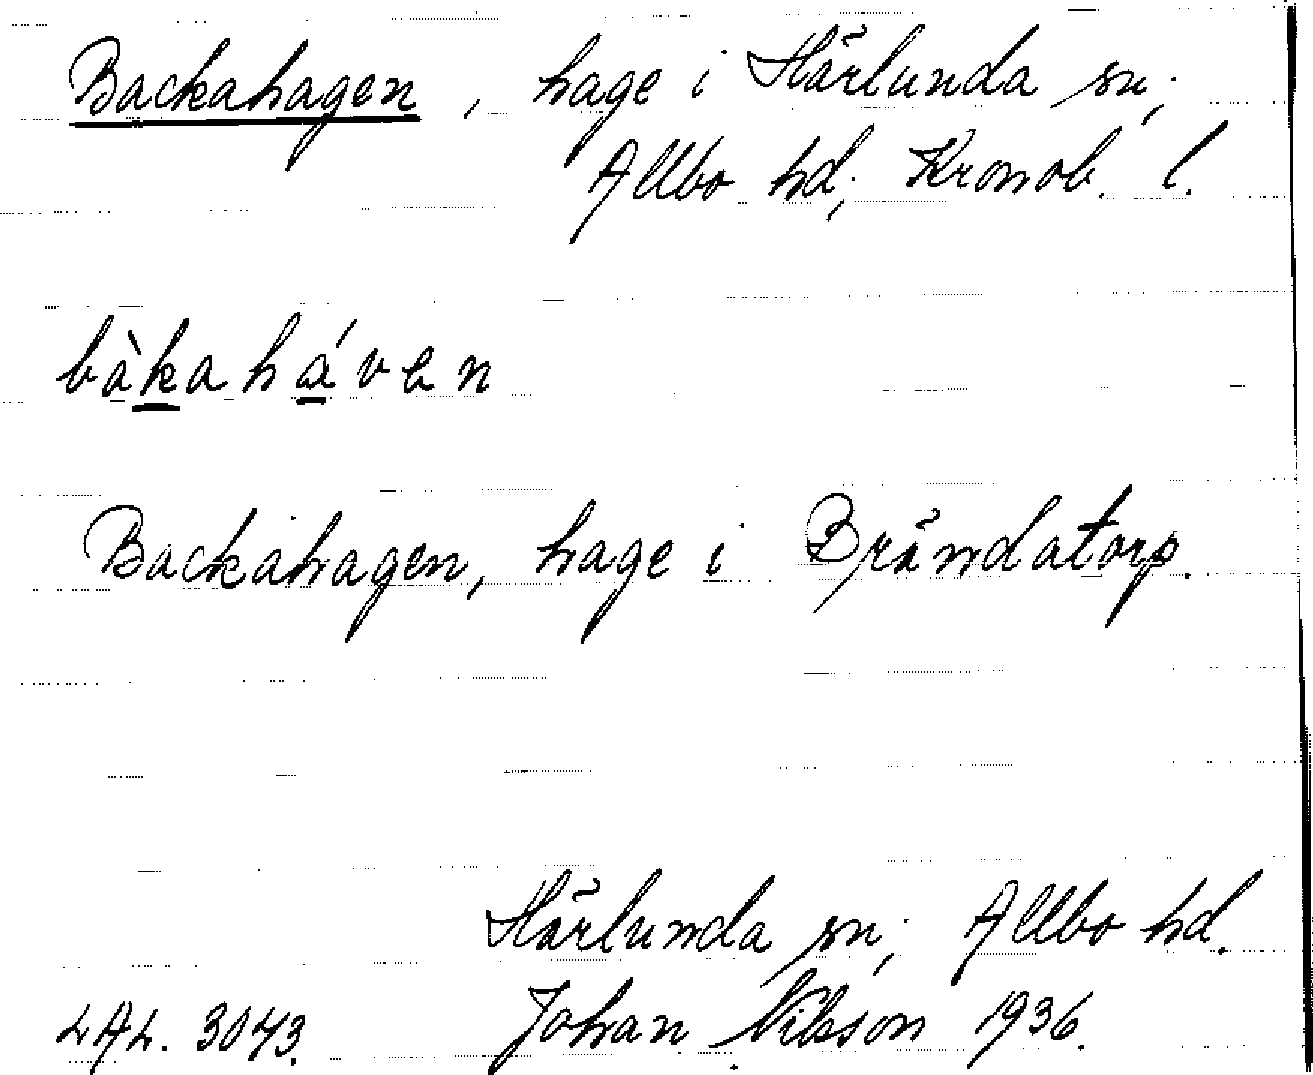 Backahagen, hage i Härlunda sn;
Allbo hd; Kronob. l.
bàkaháven
Backahagen, hage i Brändatorp.
Härlunda sn; Allbo hd.
LAL. 3043. Johan Nilsson 1936.